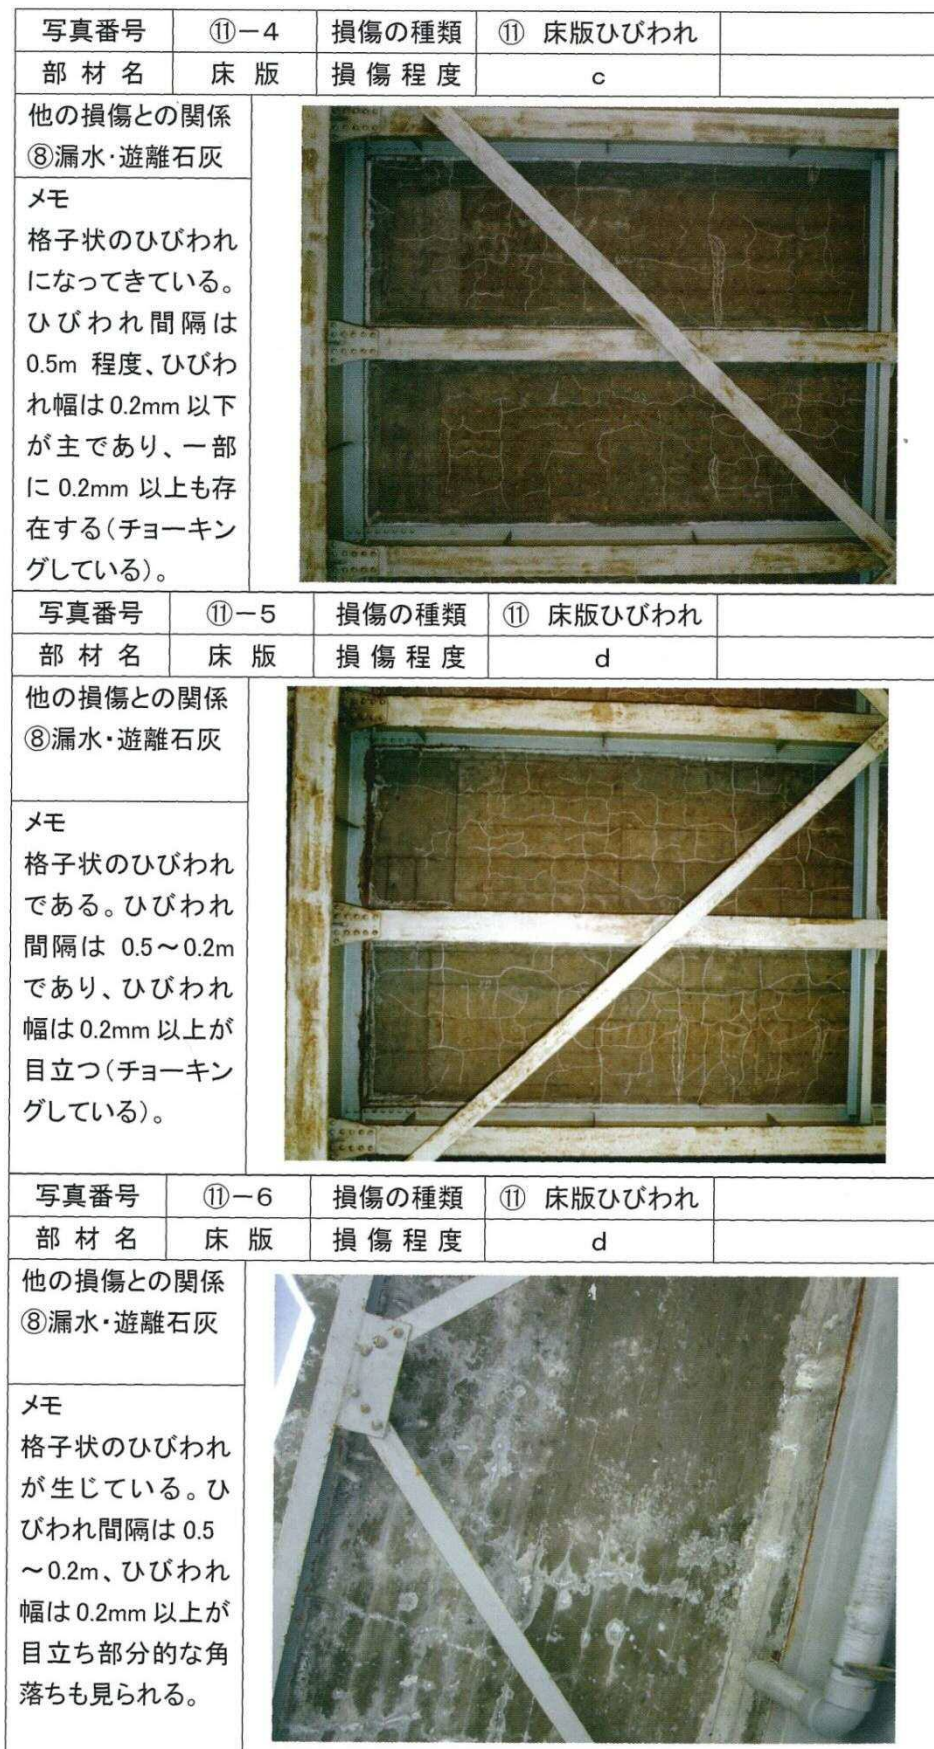 写真番号 ⑪－4 損傷の種類 ⑪ 床版ひびわれ
部材名 床版 損傷程度 c
他の損傷との関係
⑧漏水・遊離石灰
メモ
格子状のひびわれ
になってきている。
ひびわれ間隔は
0.5m 程度、ひびわ
れ幅は0.2mm 以下
が主であり、一部
に 0.2mm 以上も存
在する(チョーキン
グしている)。
写真番号 ⑪－5 損傷の種類 ⑪ 床版ひびわれ
部材名 床版 損傷程度 d
他の損傷との関係
⑧漏水・遊離石灰
メモ
格子状のひびわれ
である。ひびわれ
間隔は 0.5～0.2m
であり、ひびわれ
幅は0.2mm 以上が
目立つ(チョーキン
グしている)。
写真番号 ⑪－6 損傷の種類 ⑪ 床版ひびわれ
部材名 床版 損傷程度 d
他の損傷との関係
⑧漏水・遊離石灰
メモ
格子状のひびわれ
が生じている。ひ
びわれ間隔は 0.5
～0.2m、ひびわれ
幅は0.2mm 以上が
目立ち部分的な角
落ちも見られる。